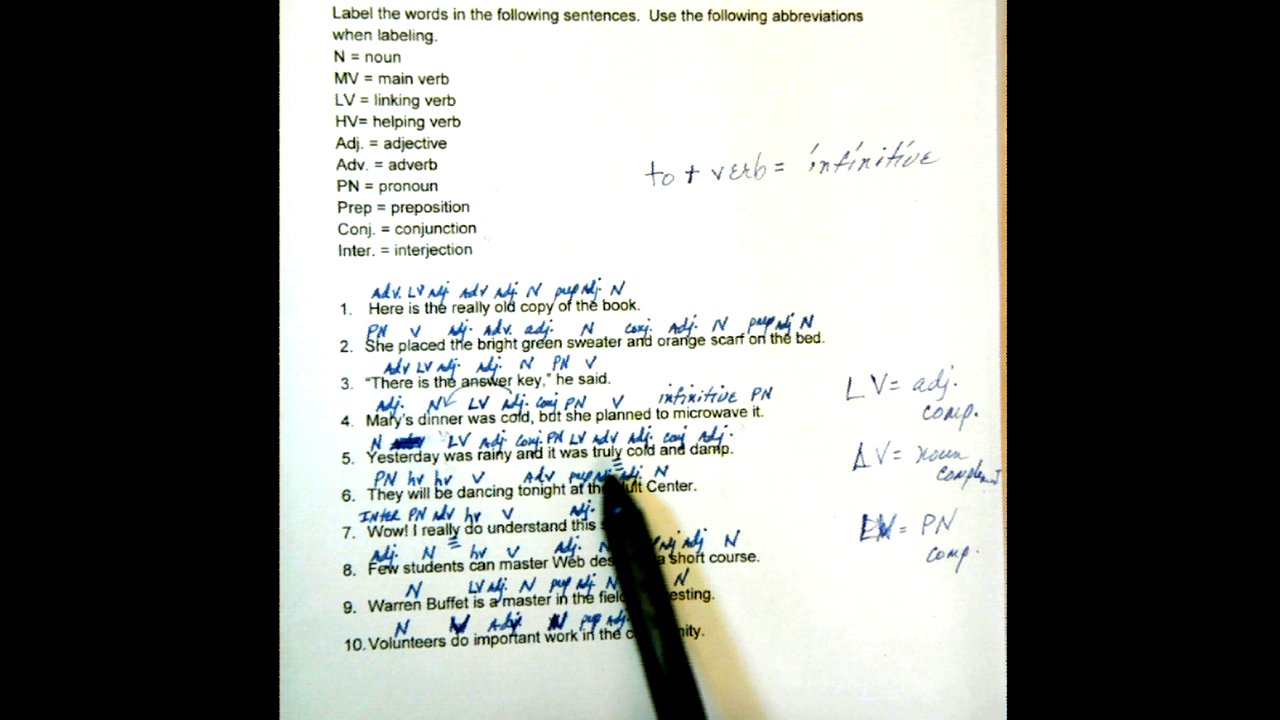 Label the words in the following sentences. Use the following abbreviations
when labeling.
N = noun
MV = main verb
LV = linking verb
HV= helping verb
Adj. = adjective
Adv. = adverb
to + verb = infinitive
PN = pronoun
Prep = preposition
Conj. = conjunction
Inter. = interjection
Adv. LV Adj. Adv Adj. N prep Adj. N
1. Here is the really old copy of the book.
PN V Adj. Adv. adj. N conj. Adj. N prep Adj N
2. She placed the bright green sweater and orange scarf on the bed.
Adv LV Adj. Adj. N PN V
3. "There is the answer key," he said.
Adj. N LV Adj. Conj PN V infinitive PN
4. Mary's dinner was cold, but she planned to microwave it.
LV = adj.
comp.
N LV Adj Conj. PN LV Adv Adj. conj Adj.
5. Yesterday was rainy and it was truly cold and damp.
V = noun
PN hv hv V Adv prep Adj N
6. They will be dancing tonight at the Center.
Inter PN Adv hv V Adj.
7. Wow! I really do understand this
= PN
comp.
Adj. N hv V Adj. Adj N
8. Few students can master Web a short course.
N LV Adj. N prep Adj N N
9. Warren Buffet is a master in the
N Adj. prep Adj.
10. Volunteers do important work in the